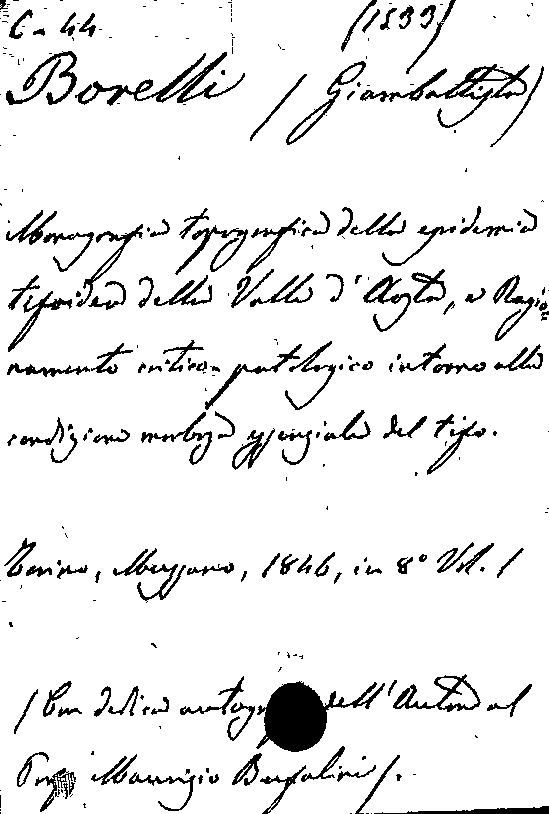 C. 44 (1833)
Borelli (Giambattista)
Monografia topografica della epidemia
tifoidea della Valle d'Aosta, e Ragio
namento critico-patologico intorno alla
condizione morbosa essenziale del tifo.
Torino, Mussano, 1846, in 8° Vol. 1
(Con dedica autogr dell'Autore al
Maurizio Bufalini).